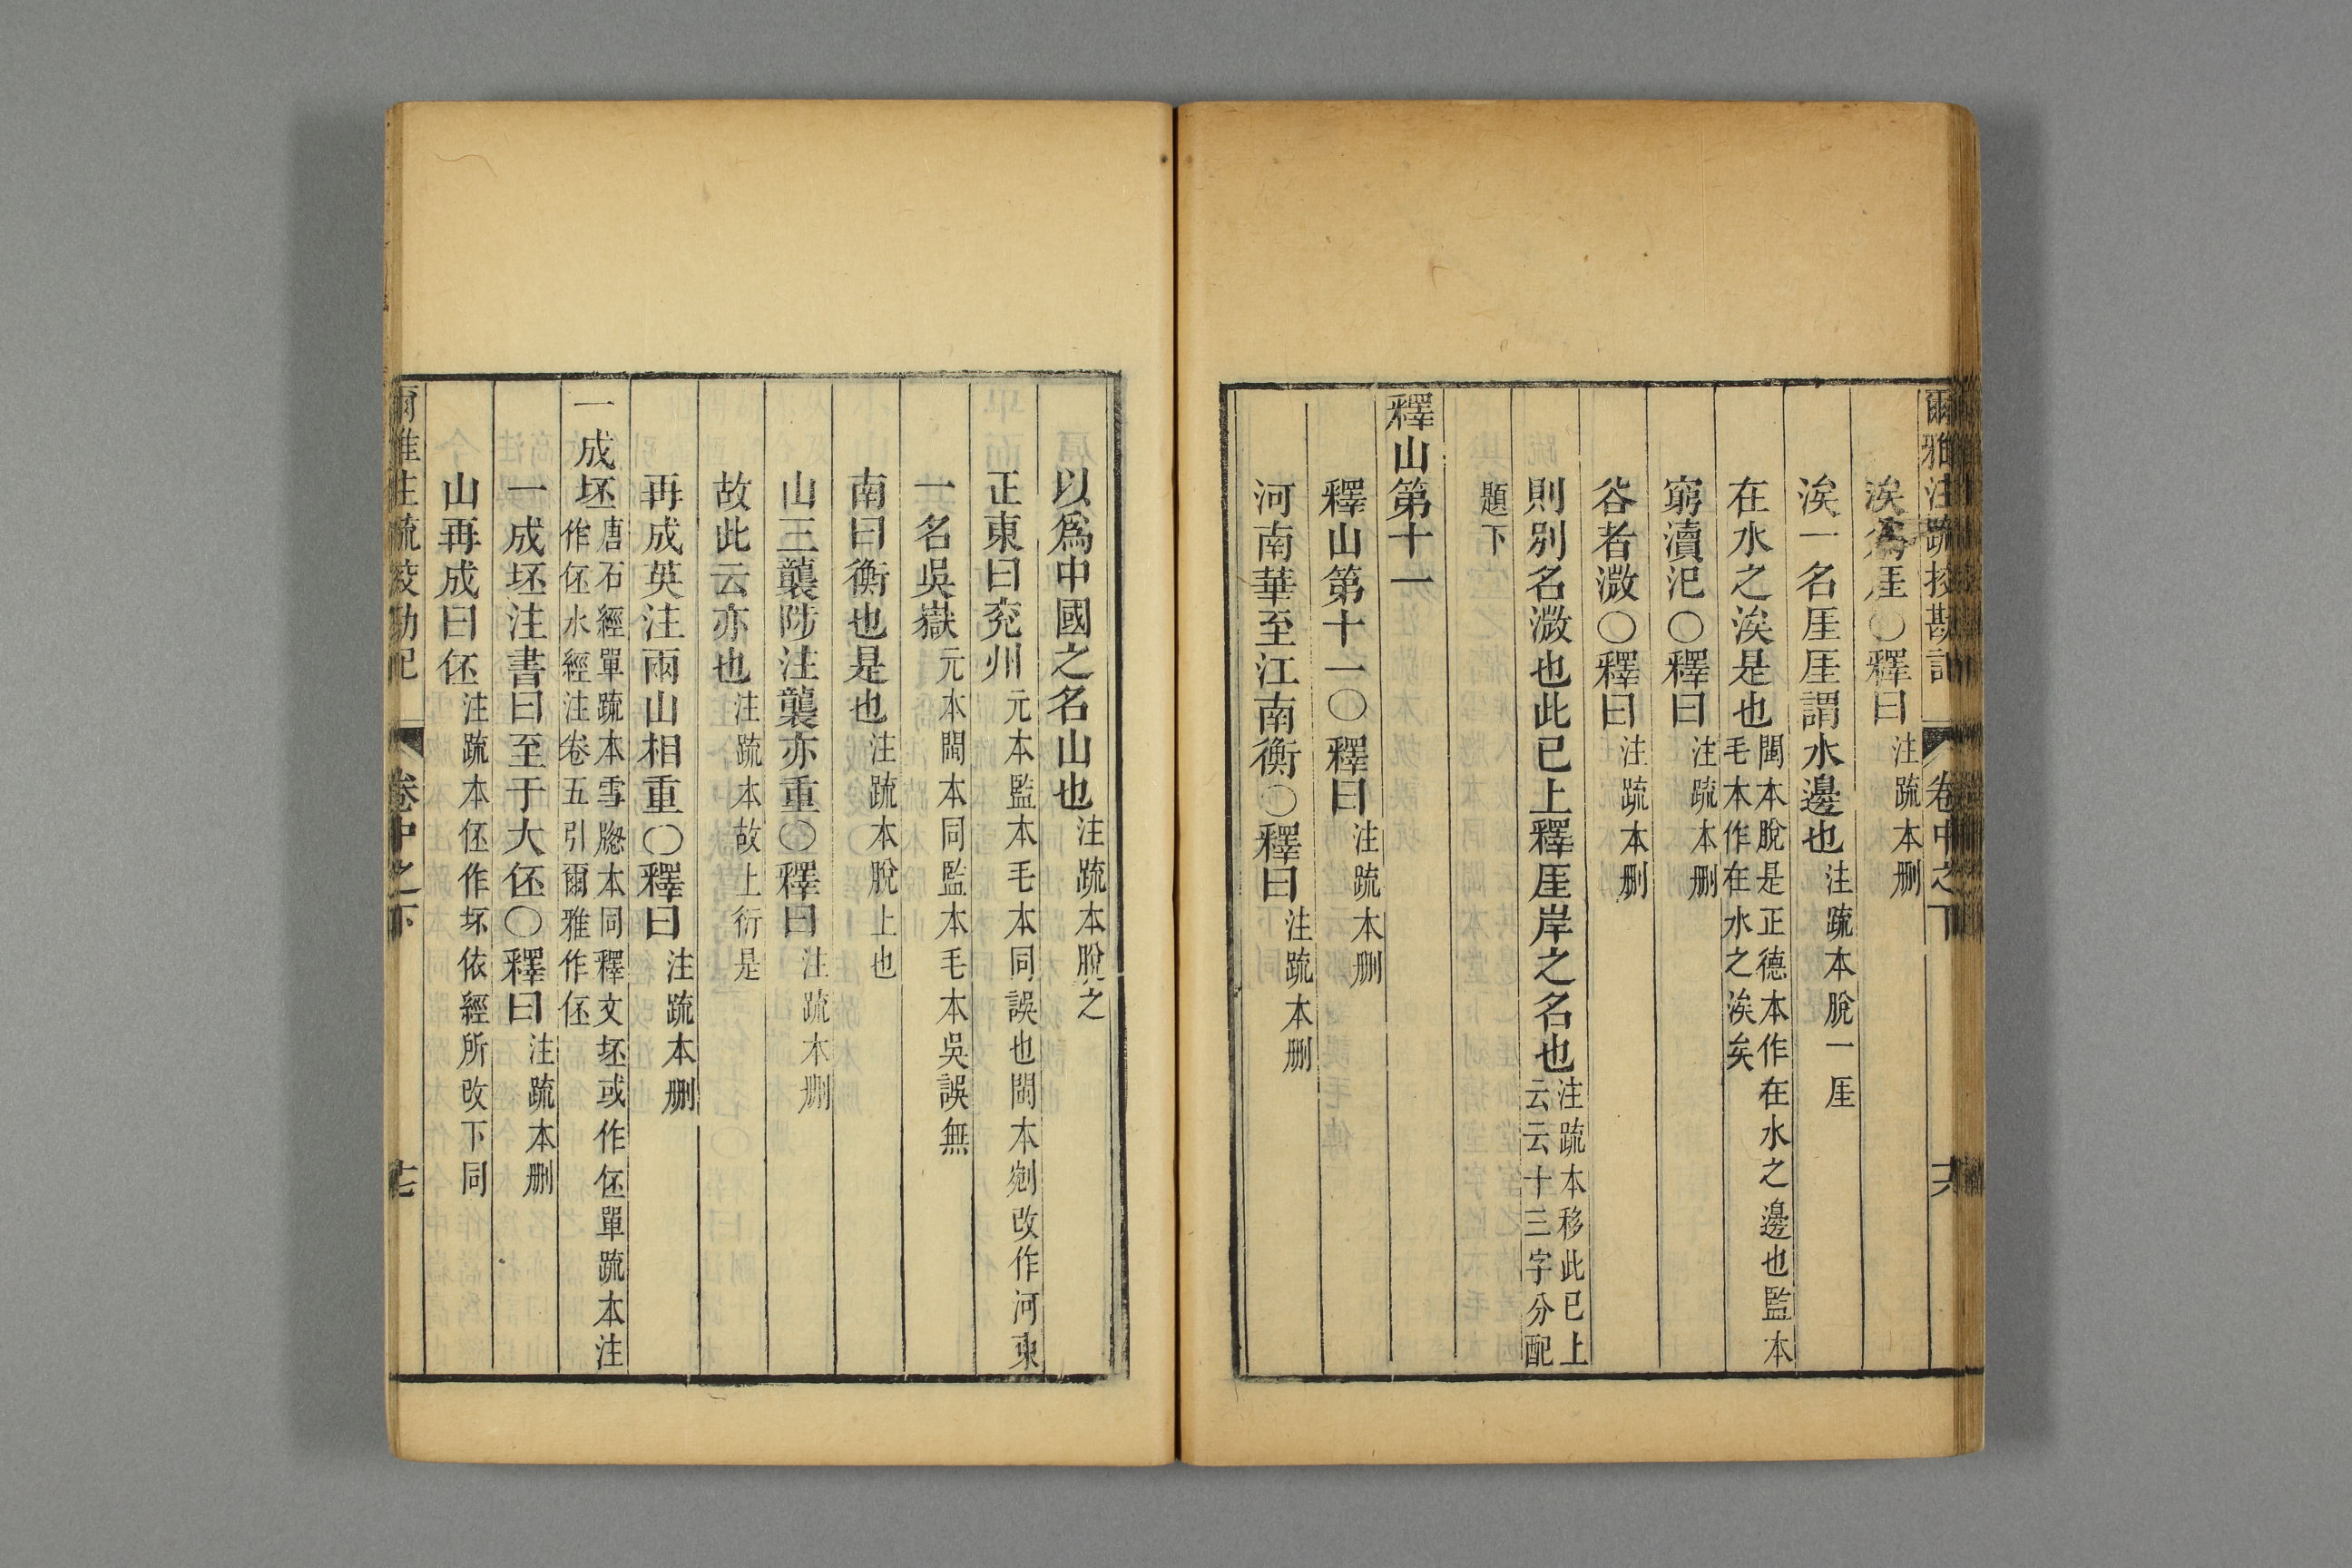 爾雅注疏挍勘記 卷中之下 六
涘爲厓○釋曰注疏本刪
涘一名厓厓謂水邊也注疏本脫一厓
在水之涘是也閩本脫是正德本作在水之邊也監本毛本作在水之涘矣
窮瀆汜○釋曰注疏本刪
谷者溦○釋曰注疏本刪
則別名溦也此已上釋厓岸之名也注疏本移此已上云云十三字分配
題下
釋山第十一
釋山第十一○釋曰注疏本刪
河南華至江南衡○釋曰注疏本刪
以爲中國之名山也注疏本脫之
正東曰兖州元本監本毛本同誤也閩本剜改作河東
一名吳嶽元本閩本同監本毛本吳誤無
南曰衡也是也注疏本脫上也
山三襲陟注襲亦重○釋曰注疏本刪
故此云亦也注疏本故上衍是
再成英注兩山相重○釋曰注疏本刪
一成坯唐石經單疏本雪牕本同釋文坯或作伾單疏本注作伾水經注卷五引爾雅作伾
一成坯注書曰至于大伾○釋曰注疏本刪
山再成曰伾注疏本伾作坏依經所改下同
爾雅注疏挍勘記 卷中之下 七